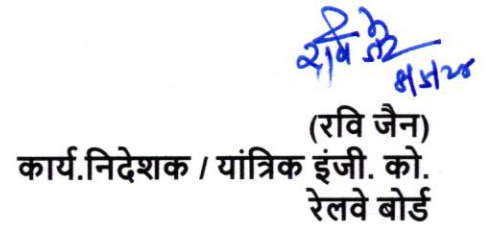 रवि जैन
(रवि जैन)
कार्य.निदेशक / यांत्रिक इंजी. को.
रेलवे बोर्ड